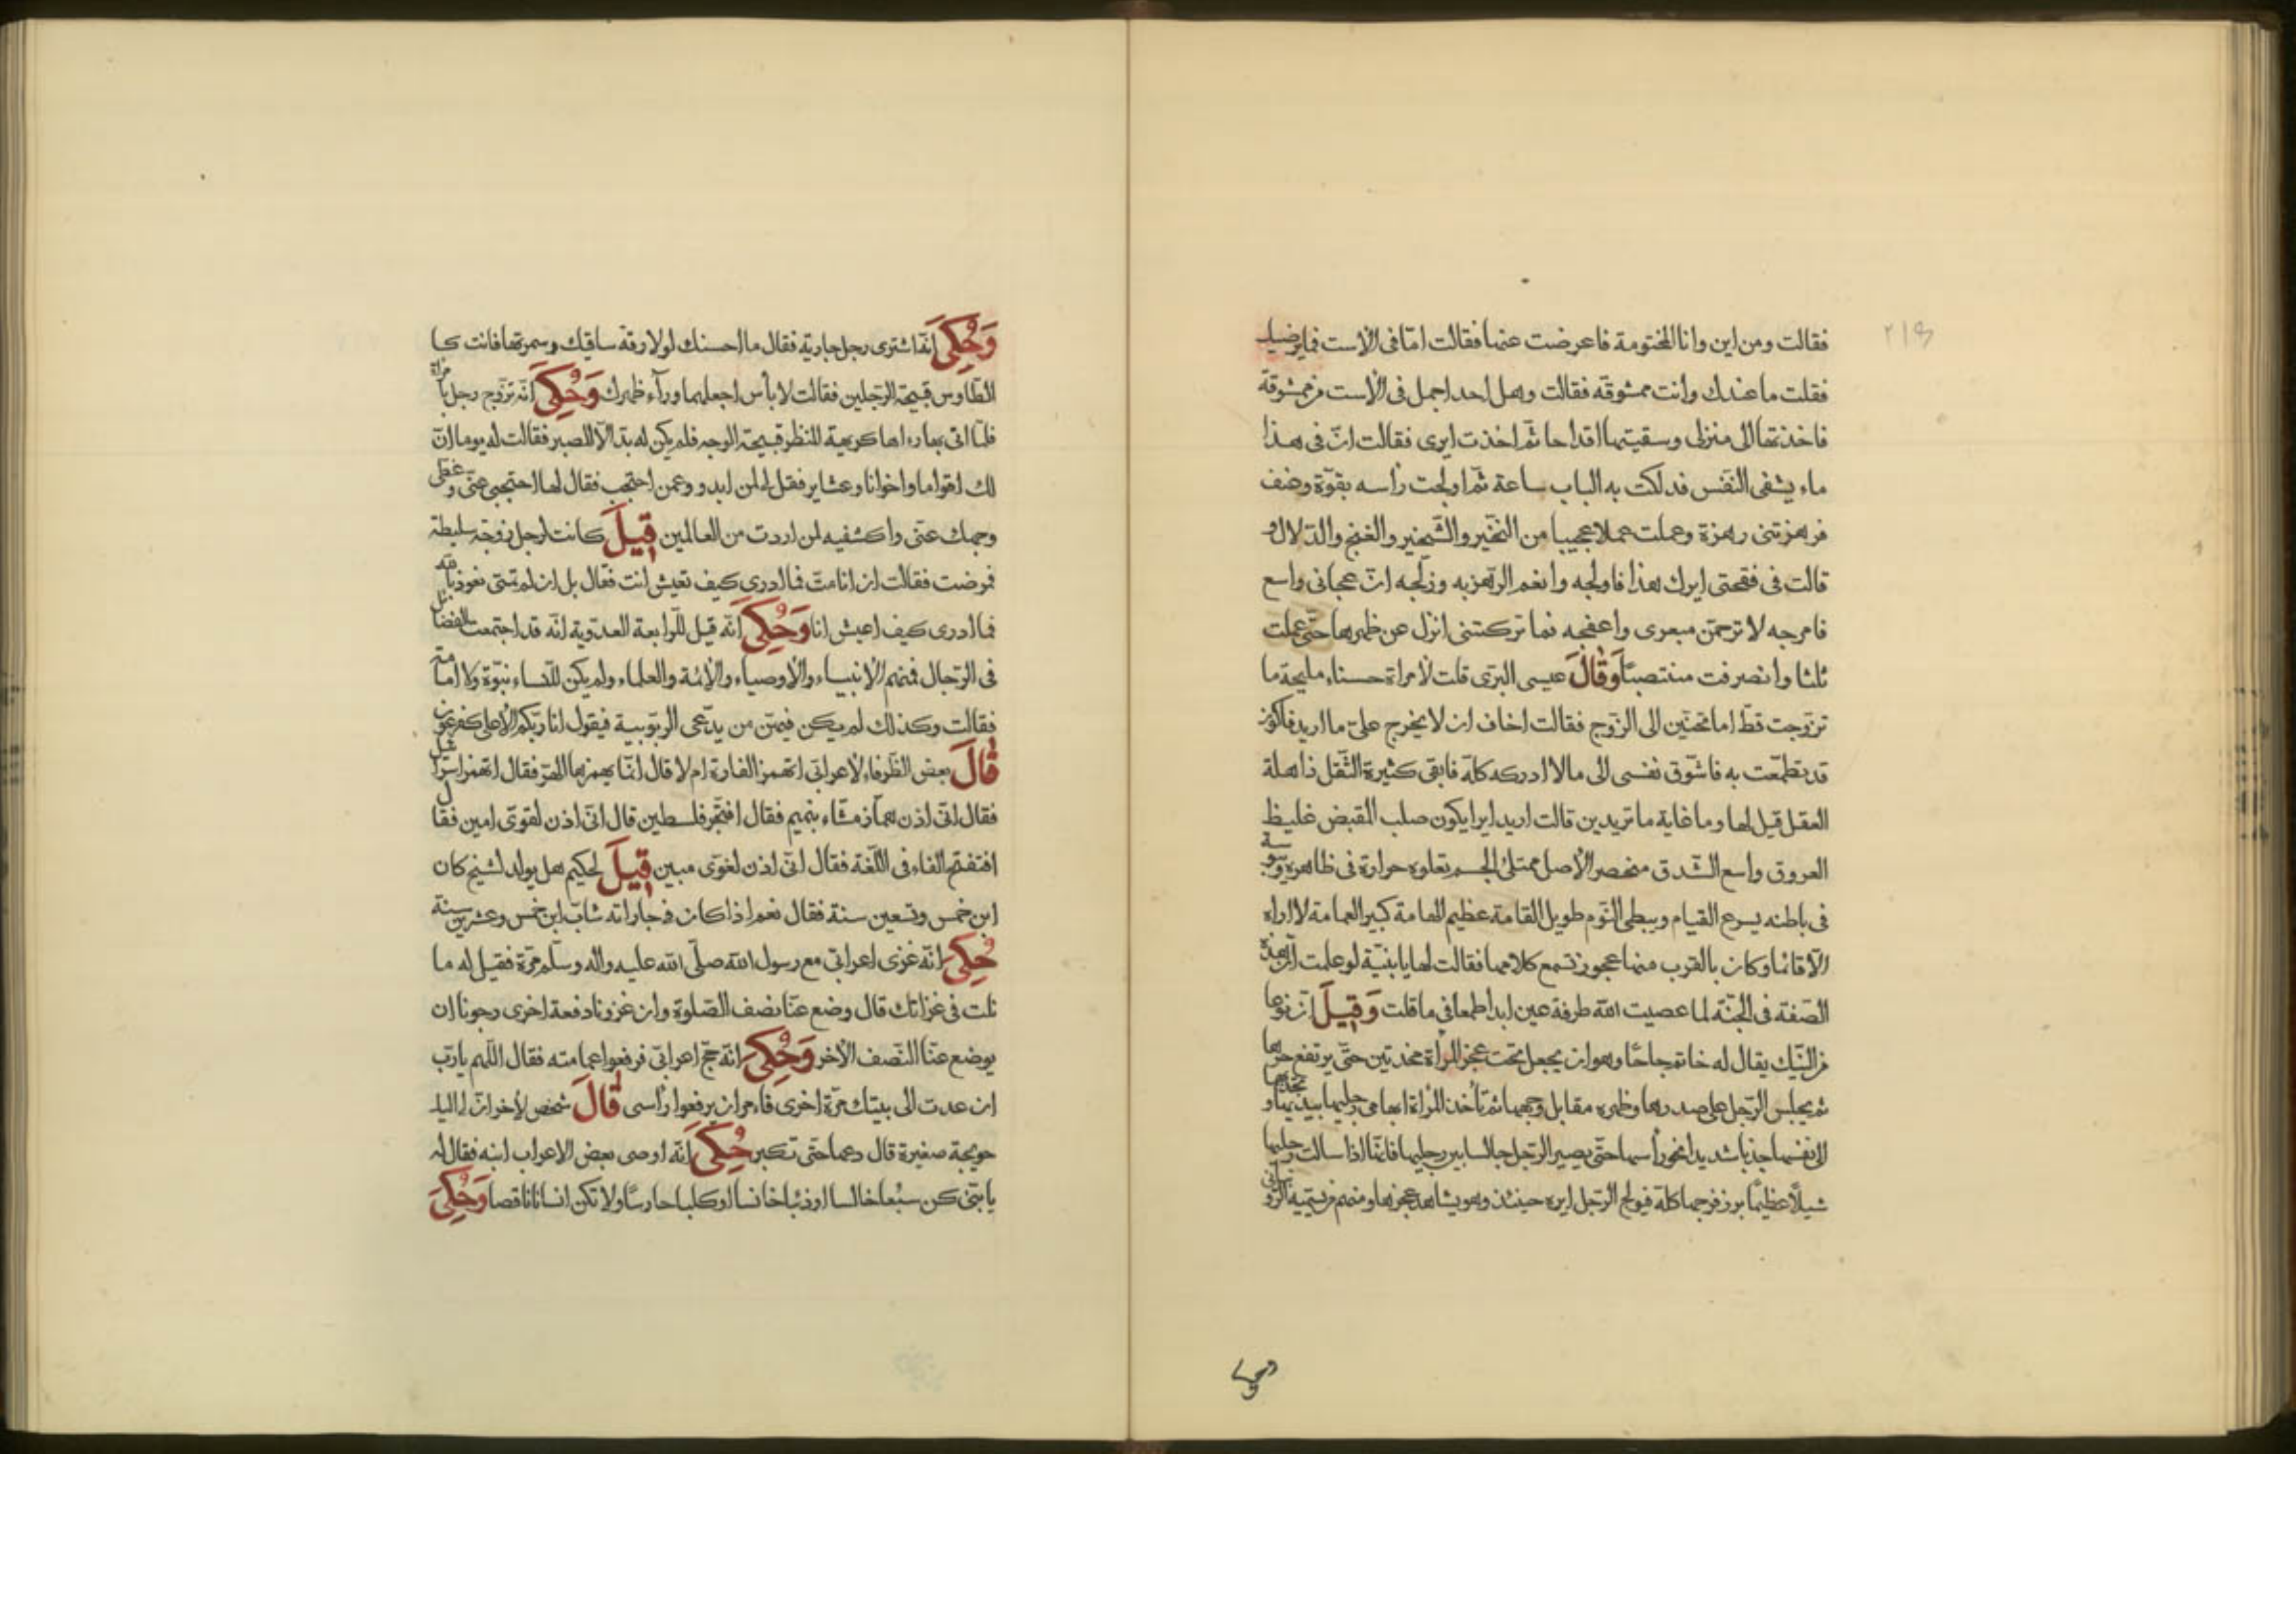 فقالت ومن اين وانا المختومة فاعرضت عنها فقالت امّا فى الأست فما يرضيك
فقلت ما عندك وانت ممشوقة فقالت وهل احد اجمل فى الأست من ممشوقة
فاخذتها الى منزلى وسقيتها اقداحا ثمّ اخذت ايرى فقالت انّ فى هذا
ماء يشفى النفس فدلكت به الباب ساعة ثمّ اولجت رأسه بقوّة وعنف
فرهزتنى رهزة وعملت عملا عجيبا من النخير والشّخير والغنج والدّلال و
قالت فى فقحتى ايرك هذا فاولجه وانعم الرّهز به وزلّجه انّ عجانى واسع
فامرجه لا ترحمن مبعرى واعفجه فما تركتنى انزل عن ظهرها حتّى عملت
ثلثا وانصرفت منتصبًا وَقَالَ عيسى البرّى قلت لأمراة حسناء مليحة ما
تزوّجت قطّ اما تحنّين الى الزّوج فقالت اخاف ان لا يخرج علىّ ما اريد فاكون
قد تطمّعت به فاشوّق نفسى الى ما لا ادركه كلّه فابقى كثيرة الثّقل ذاهلة
العقل قيل لها وما غاية ما تريدين قالت اريد ايرا يكون صلب المقبض غليظ
العروق واسع الشّدق منحصر الأصل ممتلئ الجسم تعلوه حرارة فى ظاهره ويبوسة
فى باطنه يسرع القيام ويبطى النّوم طويل القامة عظيم الهامة كبير العمامة لا اراه
الّا قائما وكان بالقرب منها عجوز تسمع كلامها فقالت لها يا بنيّة لو علمت انّ هذه
الصّفة فى الجنّة لما عصيت الله طرفة عين ابدا طمعا فى ما قلت وَقِيلَ انّ نوعا
من النّيك يقال له خاتم جاحًا وهو ان يجعل تحت عجز المرأة مخدّتين حتّى يرتفع حرها
ثم يجلس الرّجل على صدرها وظهره مقابل وجهها ثم تأخذ المرأة ابهامى رجليها بيديها و تجذبهما
الى نفسها جذبا شديدا نحو رأسها حتّى يصير الرّجل جالسا بين رجليها فانّها اذا سالت رجليها
شيلًا عظيمًا برز فرجها كلّه فيولج الرّجل ايره حينئذ وهو يشاهد عجزها ومنهم من يسمّيه الزّوانى
وحكى
وَحُكِىَ انّه اشترى رجل جارية فقال ما احسنك لولا رقّة ساقيك وسمرتها فانت كـ
الطّاوس قبيحة الرّجلين فقالت لا بأس اجعلهما ورآء ظهرك وَحُكِىَ انّه تزوّج رجل بامراة
فلمّا اتى بها رءاها كريهة المنظر قبيحة الوجه فلم يكن له بدّ الّا الصبر فقالت له يوما انّ
لك اقواما واخوانا وعشاير فقل لى لمن ابدو وعمن احتجب فقال لها احتجبى عنّى وغطّى
وجهك عنّى واكشفيه لمن اردت من العالمين قِيلَ كانت لرجل زوجة سليطة
فمرضت فقالت ان انا متّ فما ادرى كيف تعيش انت فقال بل ان لم تمتى نعوذ بالله
فما ادرى كيف اعيش انا وَحُكِىَ انّه قيل للرّابعة العدويّة انّه قد اجتمعت الفضائل
فى الرّجال فمنهم الأنبياء والأوصياء والأئمّة والعلماء ولم يكن للنّساء نبوّة ولا امامة
فقالت وكذلك لم يكن فيهنّ من يدّعى الربوبية فيقول انا ربّكم الأعلى كفرعون
قَالَ بعض الظّرفاء لأعرابى اتهمز الفارة ام لا قال انّما يهمزها الهرّ فقال اتهمز اسرائيل
فقال انّى اذن همّاز مشّاء بنميم فقال افتجرّ فلسطين قال انّى اذن لقوىّ امين فقال
افتفتح الفاء فى اللّغة فقال انّى اذن لغوىّ مبين قِيلَ لحكيم هل يولد لشيخ كان
ابن خمس وتسعين سنة فقال نعم اذا كان فى جاراته شابّ ابن خمس وعشرين سنة
حُكِىَ انّه غزى اعرابىّ مع رسول الله صلّى الله عليه واله وسلّم مرّة فقيل له ما
نلت فى غزاتك قال وضع عنّا نصف الصّلوة وان غزونا دفعة اخرى رجونا ان
يوضع عنّا النّصف الأخر وَحُكِىَ انّه حجّ اعرابىّ فرفعوا عمامته فقال اللّهم يا ربّ
ان عدت الى بيتك مرّة اخرى فاءمر ان يرفعوا رأسى قَالَ شخص لأخر انّ لى اليك
حويجة صغيرة قال دعها حتّى تكبر حُكِىَ انّه اوصى بعض الاعراب ابنه فقال له
يا بنىّ كن سبُعا خالسا او ذئبا خانسا او كلبا حارسًا ولا تكن انسانا ناقصا وَحُكِىَ